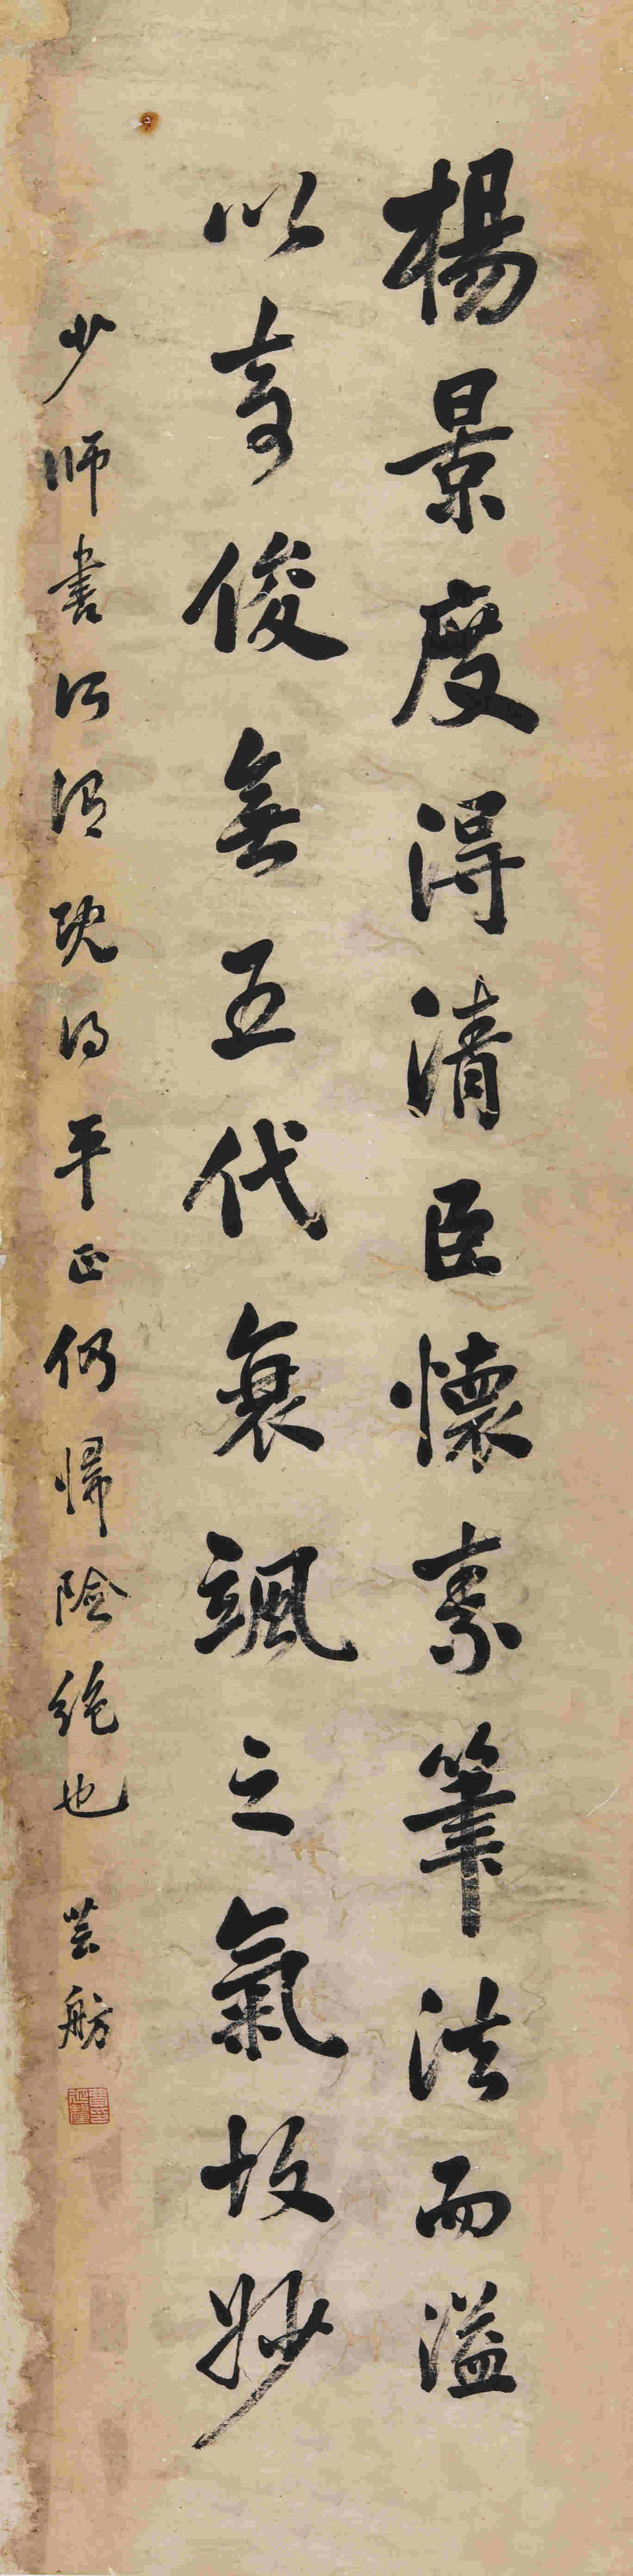 楊景度得清臣懷素筆法而溢
以奇俊無五代衰颯之氣故妙
少師書所謂既得平正仍歸險絕也 芸舫